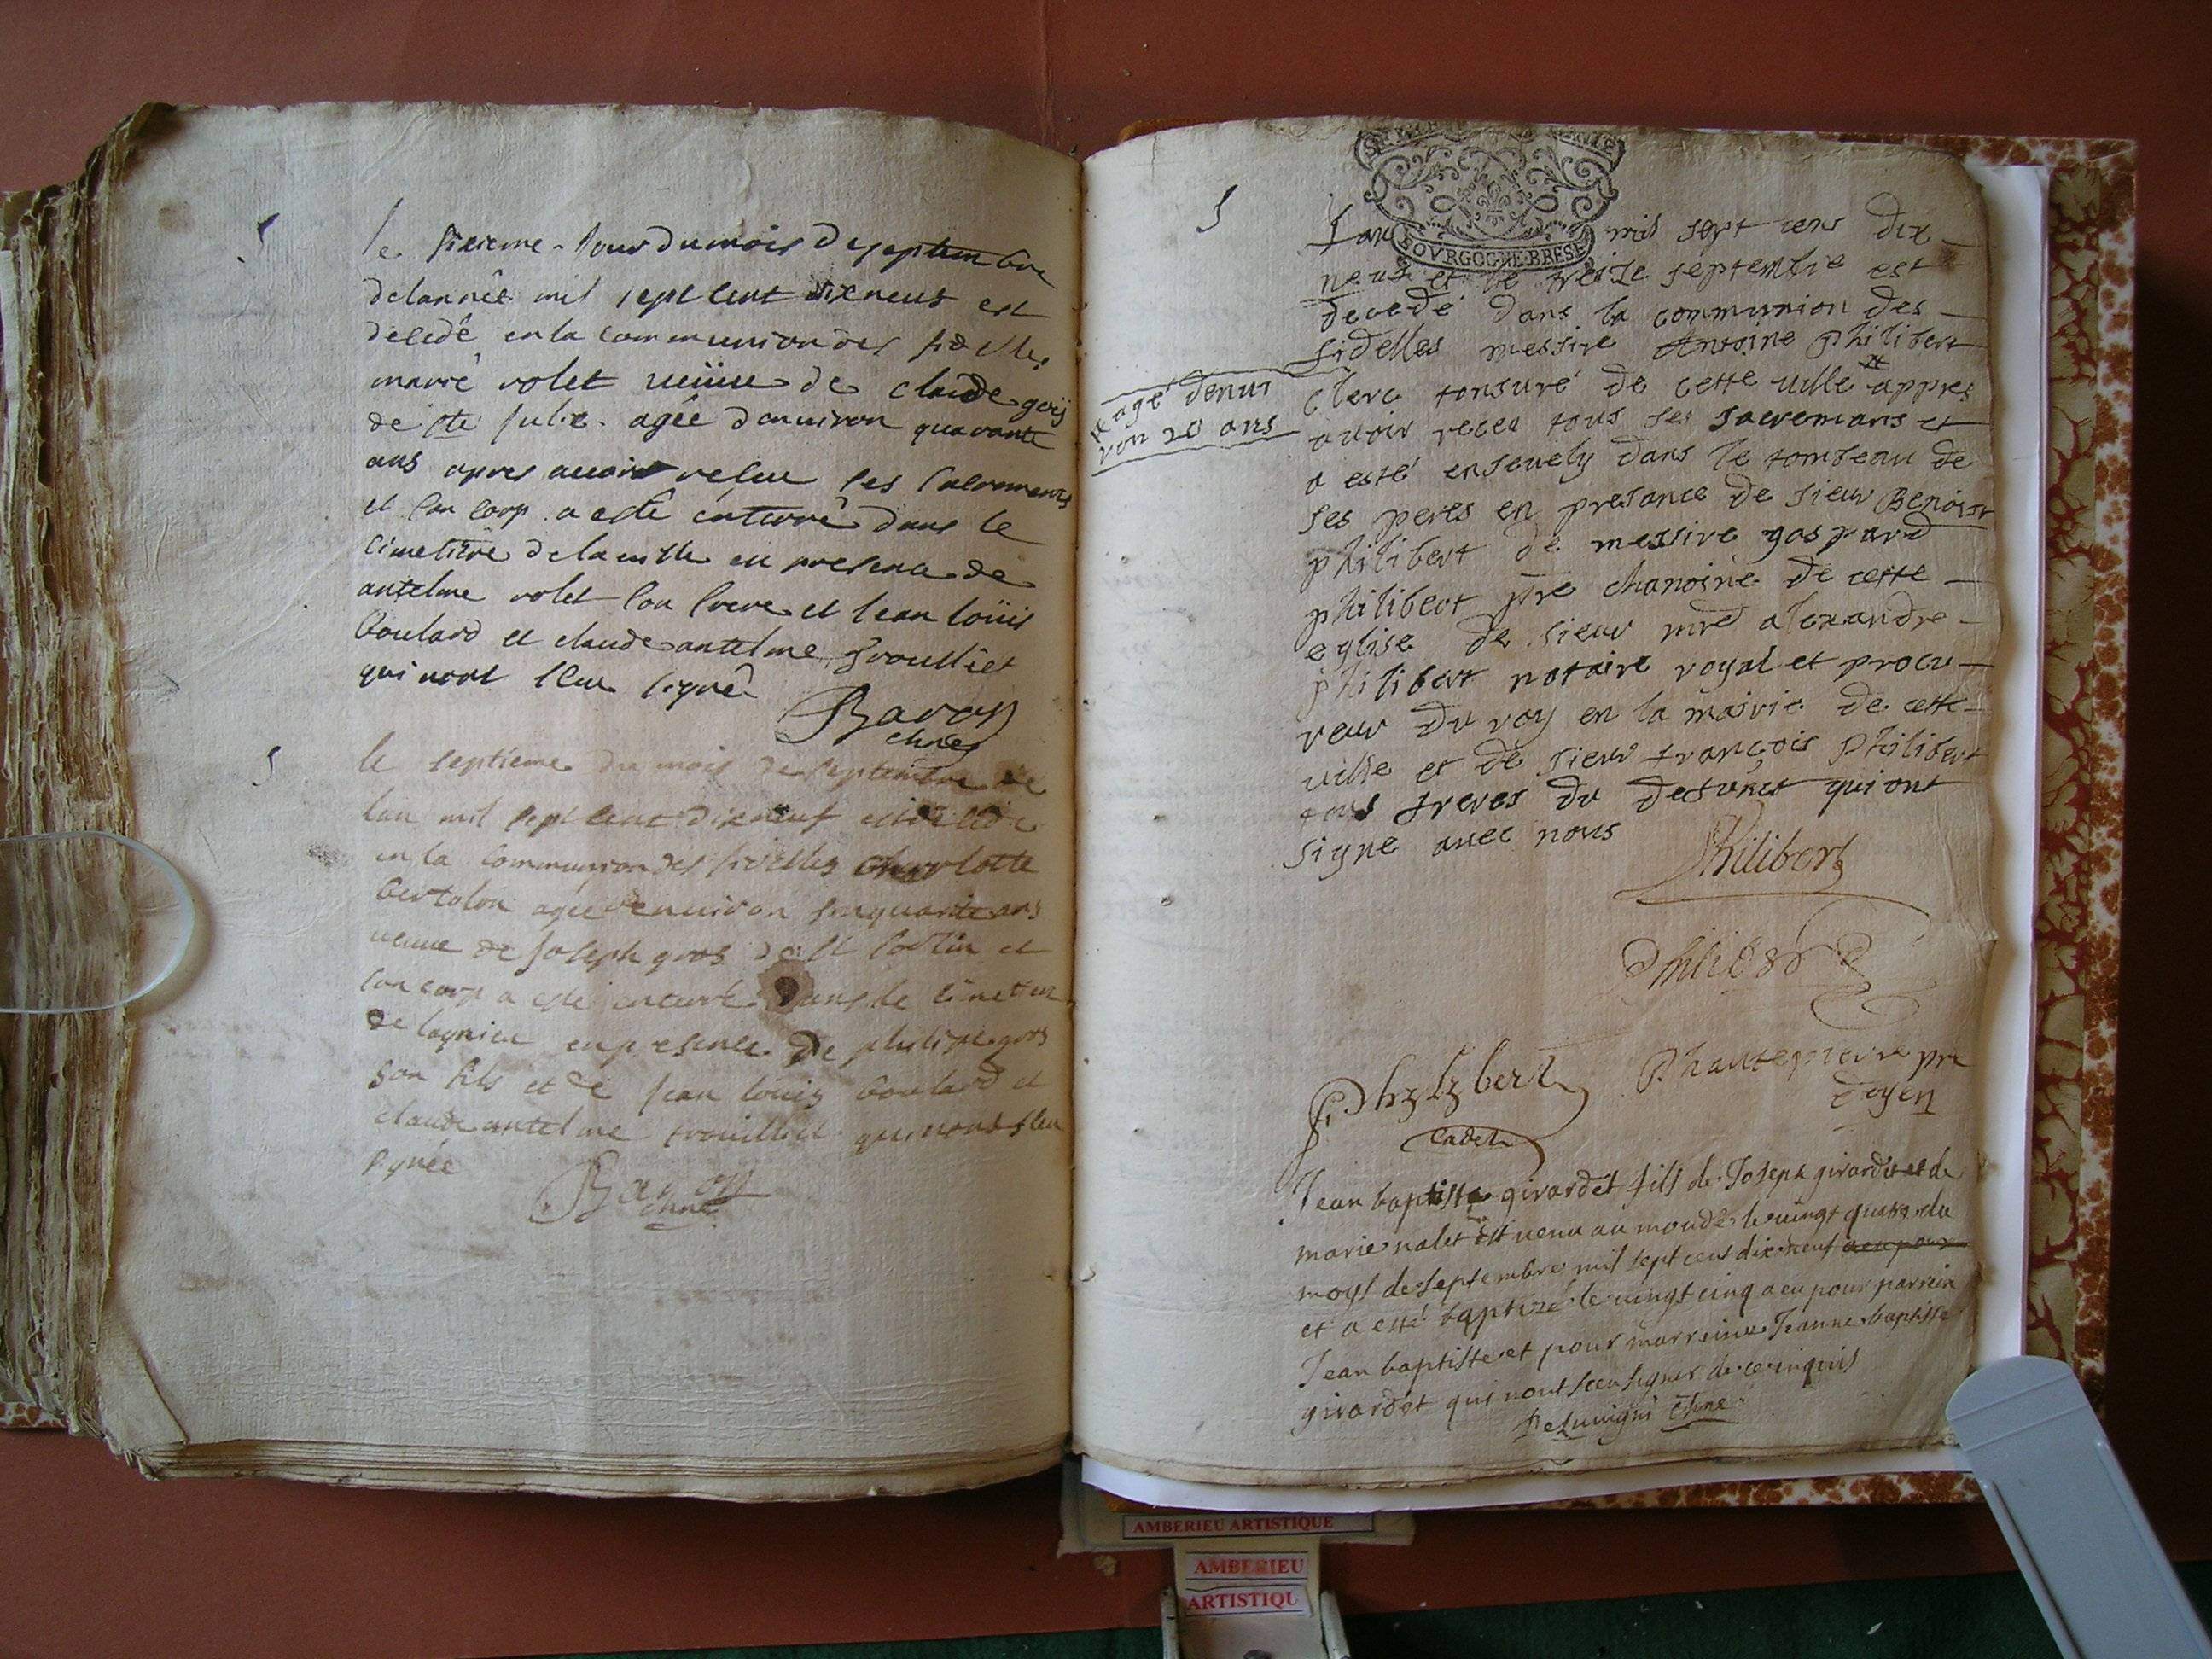 s
le sixieme jour du mois de septembre
de lannée mil sept cent dixneuf est
decedé en la communion des fidelles
marie volet veüve de claude goÿ
de ste julie agée denuiron quarante
ans apres auoir receu ses sacrements
et son corp a esté enterré dans le
cimetiere de la uille en presence de
antelme volet son frere et jean loüis
boulard et claude antelme trouilliet
qui nont sceu signé
Baron
chne
s
le septieme du mois de septembre de
lan mil sept cent dixneuf est decedé
en la communion des fidelles charlotte
bertolon agée denuiron sinquante ans
ueuue de joseph gros de st sorlin et
son corp a esté enterré dans le cimetier
de lagnieu en presence de philipe gros
son fils et de jean louis boulard et
claude antelme trouilliet qui nont sceu
signée
Baron
chne
SOVRGOGNE·BRESE
s
Lan mil sept cens dix
neuf et le treize septembre est
decedé dans la communion des
fidelles messire Antoine philibert
clerc tonsuré de cette uille # appres
# agé denui
ron 20 ans
auoir receu tous ses sacremans et
a esté enseuely dans le tombeau de
ses peres en presance de sieur Benoist
philibert de messire gaspard
philibert pre chanoine de cette
eglise de sieur mre alexandre
philibert notaire royal et procu
reur du roy en la mairie de cette
uille et de sieur françois philibert
tous freres du defunct qui ont
signe auec nous
Philibert
Philibert
Philibert
cadet
P hautepierre pre
doyen
Jean baptiste girardet fils de Joseph girardet et de
marie nalet est uenu au monde le uingt quatre du
moys de septembre mil sept cent dixneuf a eu pour
et a esté baptizé le uingt cinq a eu pour parrein
Jean baptiste et pour marreine Jeanne baptiste
girardet qui nont sceu signer de ce inquis
chne
AMBERIEU ARTISTIQUE
AMBERIEU
ARTISTIQU